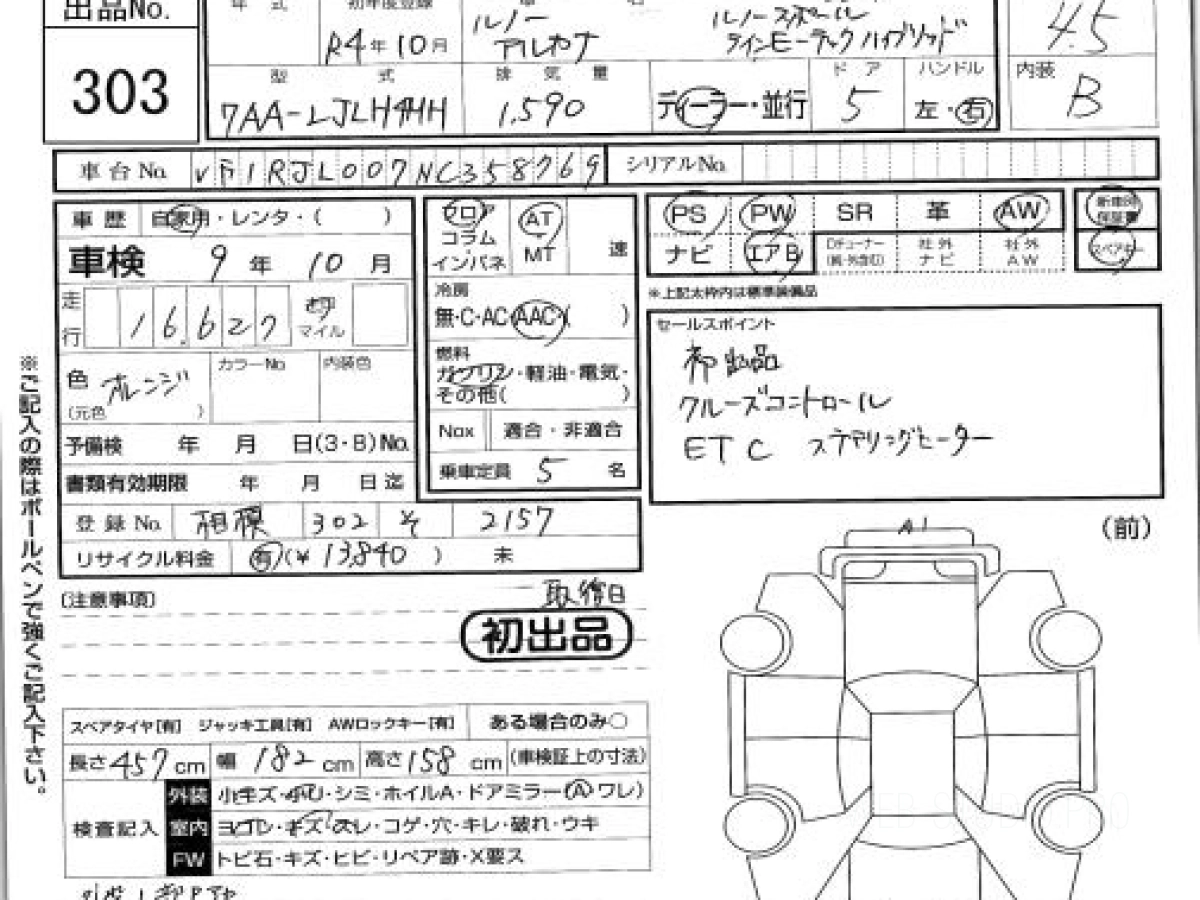 出品No.
303
年 式
初年度登録
R4年10月
ルノー
アルカナ
ルノースポール
ラインE-テックハイブリッド
4.5
型 式
7AA-LJLH4HH
排 気 量
1,590
ディーラー・並行
ドア
5
ハンドル
左・右
内装
B
車台No.
VF1RJL007NC358769
シリアルNo.
車歴 自家用・レンタ・( )
車検 9年 10月
走行 16,627 キロ マイル
色 オレンジ
(元色 )
カラーNo
内装色
予備検 年 月 日(3・8)No.
書類有効期限 年 月 日迄
登録No. 相模 302 そ 2157
リサイクル料金 有(¥ 13,840 ) 未
フロア
コラム
インパネ
AT
MT
速
冷房
無・C・AC・AAC( )
燃料
ガソリン・軽油・電気・
その他( )
Nox 適合・非適合
乗車定員 5 名
PS PW SR 革 AW
新車時保証書
ナビ エアB
Dチューナー
社外ナビ
社外AW
スペアキー
※上記太枠内は標準装備品
セールスポイント
初出品
クルーズコントロール
ETC ステアリングヒーター
※ご記入の際はボールペンで強くご記入下さい。
[注意事項]
初出品
A1
(前)
スペアタイヤ[有] ジャッキ工具[有] AWロックキー[有] ある場合のみ○
長さ457cm 幅182cm 高さ158cm (車検証上の寸法)
検査記入
外装 小キズ・小凹・シミ・ホイルA・ドアミラー(A ワレ)
室内 ヨゴレ・キズ・スレ・コゲ・穴・キレ・破れ・ウキ
FW トビ石・キズ・ヒビ・リペア跡・X要ス